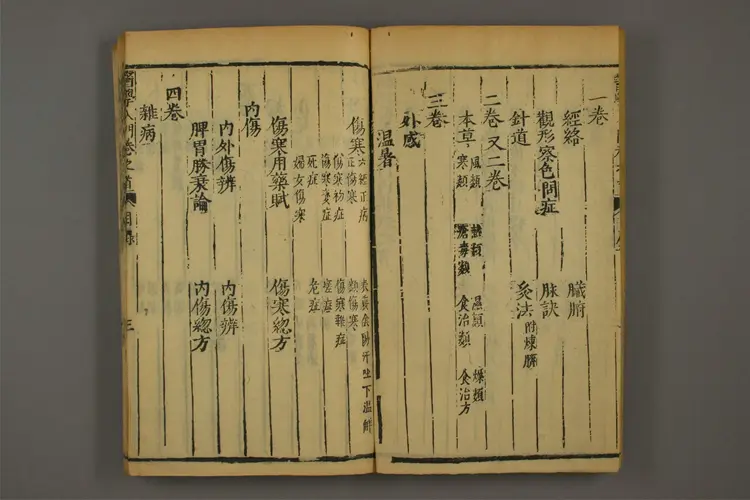 一卷
經絡 臟腑
觀形察色問症 脉訣
針道 灸法附煉臍
二卷 又二卷
本草 風類 熱類 濕類 燥類
寒類 瘡毒類 食治類 食治方
三卷
外感
温暑
傷寒 六經正病 表裏陰陽汗吐下温解
正傷寒 類傷寒
傷寒初症 傷寒雜症
傷寒變症
死症 危症
婦女傷寒
傷寒用藥賦 傷寒總方
內傷
內外傷辨 內傷辨
脾胃勝衰論 內傷總方
四卷
雜病
醫學入門卷之首 目録 三